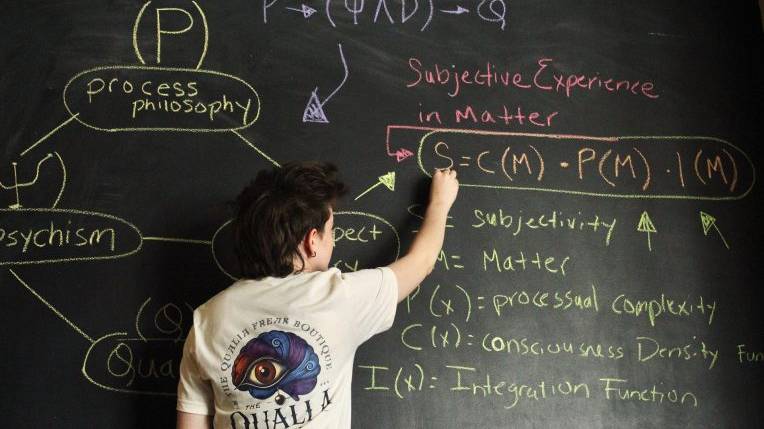 (P)
P → (Ψ ∧ D) → Q
process
philosophy
Subjective Experience
in Matter
S = C(M) · P(M) · I(M)
Ψ
psychism
pect
ry
= subjectivity
M = Matter
P(x) = processual complexity
C(x) = consciousness Density Fun
I(x) = Integration Function
(Q)
Qua
THE QUALIA FREAK BOUTIQUE
THE
QUALIA